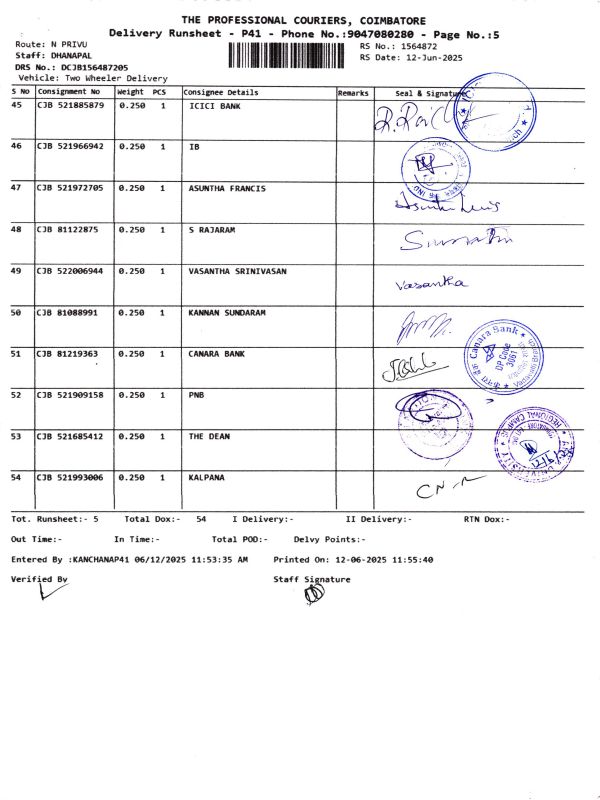 THE PROFESSIONAL COURIERS, COIMBATORE
Delivery Runsheet - P41 - Phone No.:9047080280 - Page No.:5
Route: N PRIVU
RS No.: 1564872
Staff: DHANAPAL
RS Date: 12-Jun-2025
DRS No.: DCJB156487205
Vehicle: Two Wheeler Delivery
S No Consignment No Weight PCS Consignee Details Remarks Seal & Signature
45 CJB 521885879 0.250 1 ICICI BANK
46 CJB 521966942 0.250 1 IB
47 CJB 521972705 0.250 1 ASUNTHA FRANCIS
48 CJB 81122875 0.250 1 S RAJARAM
49 CJB 522006944 0.250 1 VASANTHA SRINIVASAN
Vasantha
50 CJB 81088991 0.250 1 KANNAN SUNDARAM
51 CJB 81219363 0.250 1 CANARA BANK
Canara Bank
DP Code
3061
52 CJB 521909158 0.250 1 PNB
53 CJB 521685412 0.250 1 THE DEAN
REGIONAL CAMPUS
54 CJB 521993006 0.250 1 KALPANA
Tot. Runsheet:- 5 Total Dox:- 54 I Delivery:- II Delivery:- RTN Dox:-
Out Time:- In Time:- Total POD:- Delvy Points:-
Entered By :KANCHANAP41 06/12/2025 11:53:35 AM Printed On: 12-06-2025 11:55:40
Verified By Staff Signature